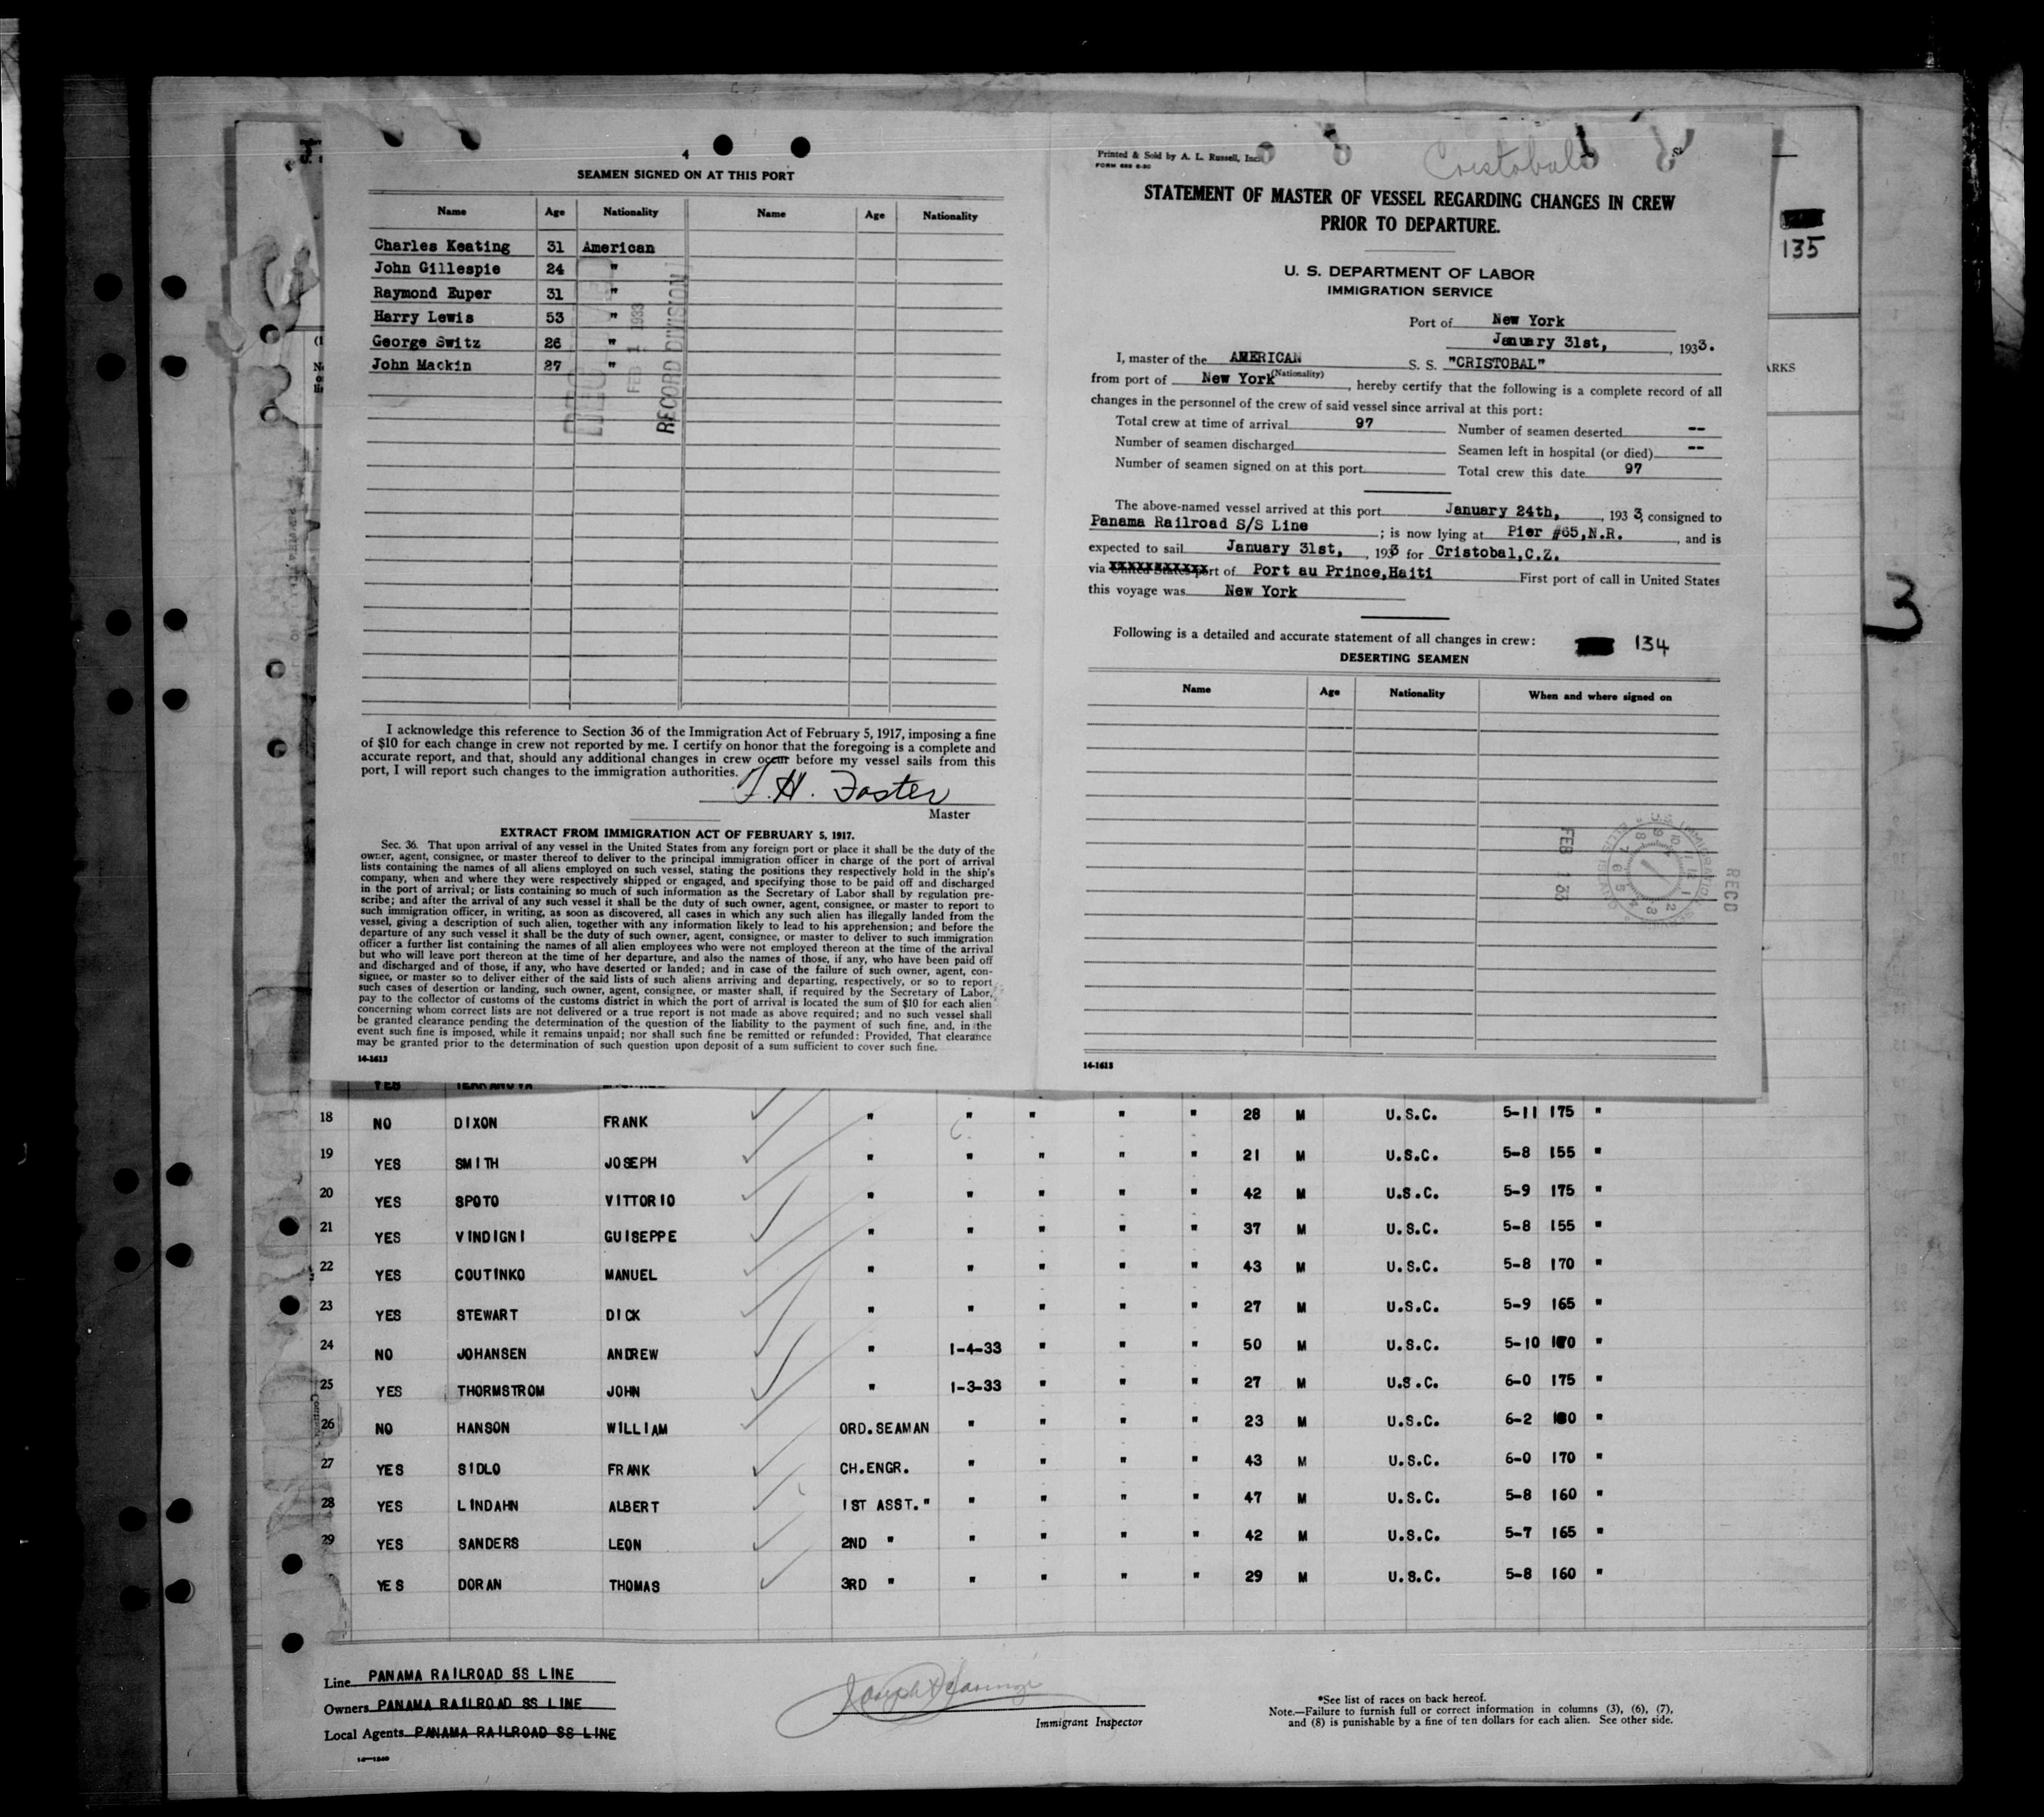 4
SEAMEN SIGNED ON AT THIS PORT
Name Age Nationality Name Age Nationality
Charles Keating 31 American
John Gillespie 24 "
Raymond Euper 31 "
Harry Lewis 53 "
George Switz 26 "
John Mackin 27 "
FEB 1 1933
RECORD DIVISION
I acknowledge this reference to Section 36 of the Immigration Act of February 5, 1917, imposing a fine
of $10 for each change in crew not reported by me. I certify on honor that the foregoing is a complete and
accurate report, and that, should any additional changes in crew occur before my vessel sails from this
port, I will report such changes to the immigration authorities.
T. H. Foster
Master
EXTRACT FROM IMMIGRATION ACT OF FEBRUARY 5, 1917.
Sec. 36. That upon arrival of any vessel in the United States from any foreign port or place it shall be the duty of the
owner, agent, consignee, or master thereof to deliver to the principal immigration officer in charge of the port of arrival
lists containing the names of all aliens employed on such vessel, stating the positions they respectively hold in the ship's
company, when and where they were respectively shipped or engaged, and specifying those to be paid off and discharged
in the port of arrival; or lists containing so much of such information as the Secretary of Labor shall by regulation pre-
scribe; and after the arrival of any such vessel it shall be the duty of such owner, agent, consignee, or master to report to
such immigration officer, in writing, as soon as discovered, all cases in which any such alien has illegally landed from the
vessel, giving a description of such alien, together with any information likely to lead to his apprehension; and before the
departure of any such vessel it shall be the duty of such owner, agent, consignee, or master to deliver to such immigration
officer a further list containing the names of all alien employees who were not employed thereon at the time of the arrival
but who will leave port thereon at the time of her departure, and also the names of those, if any, who have been paid off
and discharged and of those, if any, who have deserted or landed; and in case of the failure of such owner, agent, con-
signee, or master so to deliver either of the said lists of such aliens arriving and departing, respectively, or so to report
such cases of desertion or landing, such owner, agent, consignee, or master shall, if required by the Secretary of Labor,
pay to the collector of customs of the customs district in which the port of arrival is located the sum of $10 for each alien
concerning whom correct lists are not delivered or a true report is not made as above required; and no such vessel shall
be granted clearance pending the determination of the question of the liability to the payment of such fine, and, in the
event such fine is imposed, while it remains unpaid; nor shall such fine be remitted or refunded: Provided, That clearance
may be granted prior to the determination of such question upon deposit of a sum sufficient to cover such fine.
14-1613
Printed & Sold by A. L. Russell, Inc.
Cristobal
STATEMENT OF MASTER OF VESSEL REGARDING CHANGES IN CREW
PRIOR TO DEPARTURE.
U. S. DEPARTMENT OF LABOR
IMMIGRATION SERVICE
Port of New York
January 31st, , 1933.
I, master of the AMERICAN S. S. "CRISTOBAL"
(Nationality)
from port of New York , hereby certify that the following is a complete record of all
changes in the personnel of the crew of said vessel since arrival at this port:
Total crew at time of arrival 97 Number of seamen deserted --
Number of seamen discharged Seamen left in hospital (or died) --
Number of seamen signed on at this port Total crew this date 97
The above-named vessel arrived at this port January 24th, , 193 3, consigned to
Panama Railroad S/S Line ; is now lying at Pier #65,N.R. , and is
expected to sail January 31st, , 1933 for Cristobal,C.Z.
via United States port of Port au Prince,Haiti First port of call in United States
this voyage was New York
Following is a detailed and accurate statement of all changes in crew: 134
DESERTING SEAMEN
Name Age Nationality When and where signed on
FEB 1 33
RECD
14-1613
135
ARKS
3
YES TERRANOVA
18 NO DIXON FRANK " " " " " 28 M U.S.C. 5-11 175 "
19 YES SMITH JOSEPH " " " " " 21 M U.S.C. 5-8 155 "
20 YES SPOTO VITTORIO " " " " " 42 M U.S.C. 5-9 175 "
21 YES VINDIGNI GUISEPPE " " " " " 37 M U.S.C. 5-8 155 "
22 YES COUTINKO MANUEL " " " " " 43 M U.S.C. 5-8 170 "
23 YES STEWART DICK " " " " " 27 M U.S.C. 5-9 165 "
24 NO JOHANSEN ANDREW " 1-4-33 " " " 50 M U.S.C. 5-10 "
25 YES THORMSTROM JOHN " 1-3-33 " " " 27 M U.S.C. 6-0 175 "
26 NO HANSON WILLIAM ORD.SEAMAN " " " " 23 M U.S.C. 6-2 "
27 YES SIDLO FRANK CH.ENGR. " " " " 43 M U.S.C. 6-0 170 "
28 YES LINDAHN ALBERT 1ST ASST." " " " " 47 M U.S.C. 5-8 160 "
29 YES SANDERS LEON 2ND " " " " " 42 M U.S.C. 5-7 165 "
YES DORAN THOMAS 3RD " " " " " 29 M U.S.C. 5-8 160 "
Line PANAMA RAILROAD SS LINE
Owners PANAMA RAILROAD SS LINE
Local Agents PANAMA RAILROAD SS LINE
Immigrant Inspector
*See list of races on back hereof.
Note.—Failure to furnish full or correct information in columns (3), (6), (7),
and (8) is punishable by a fine of ten dollars for each alien. See other side.